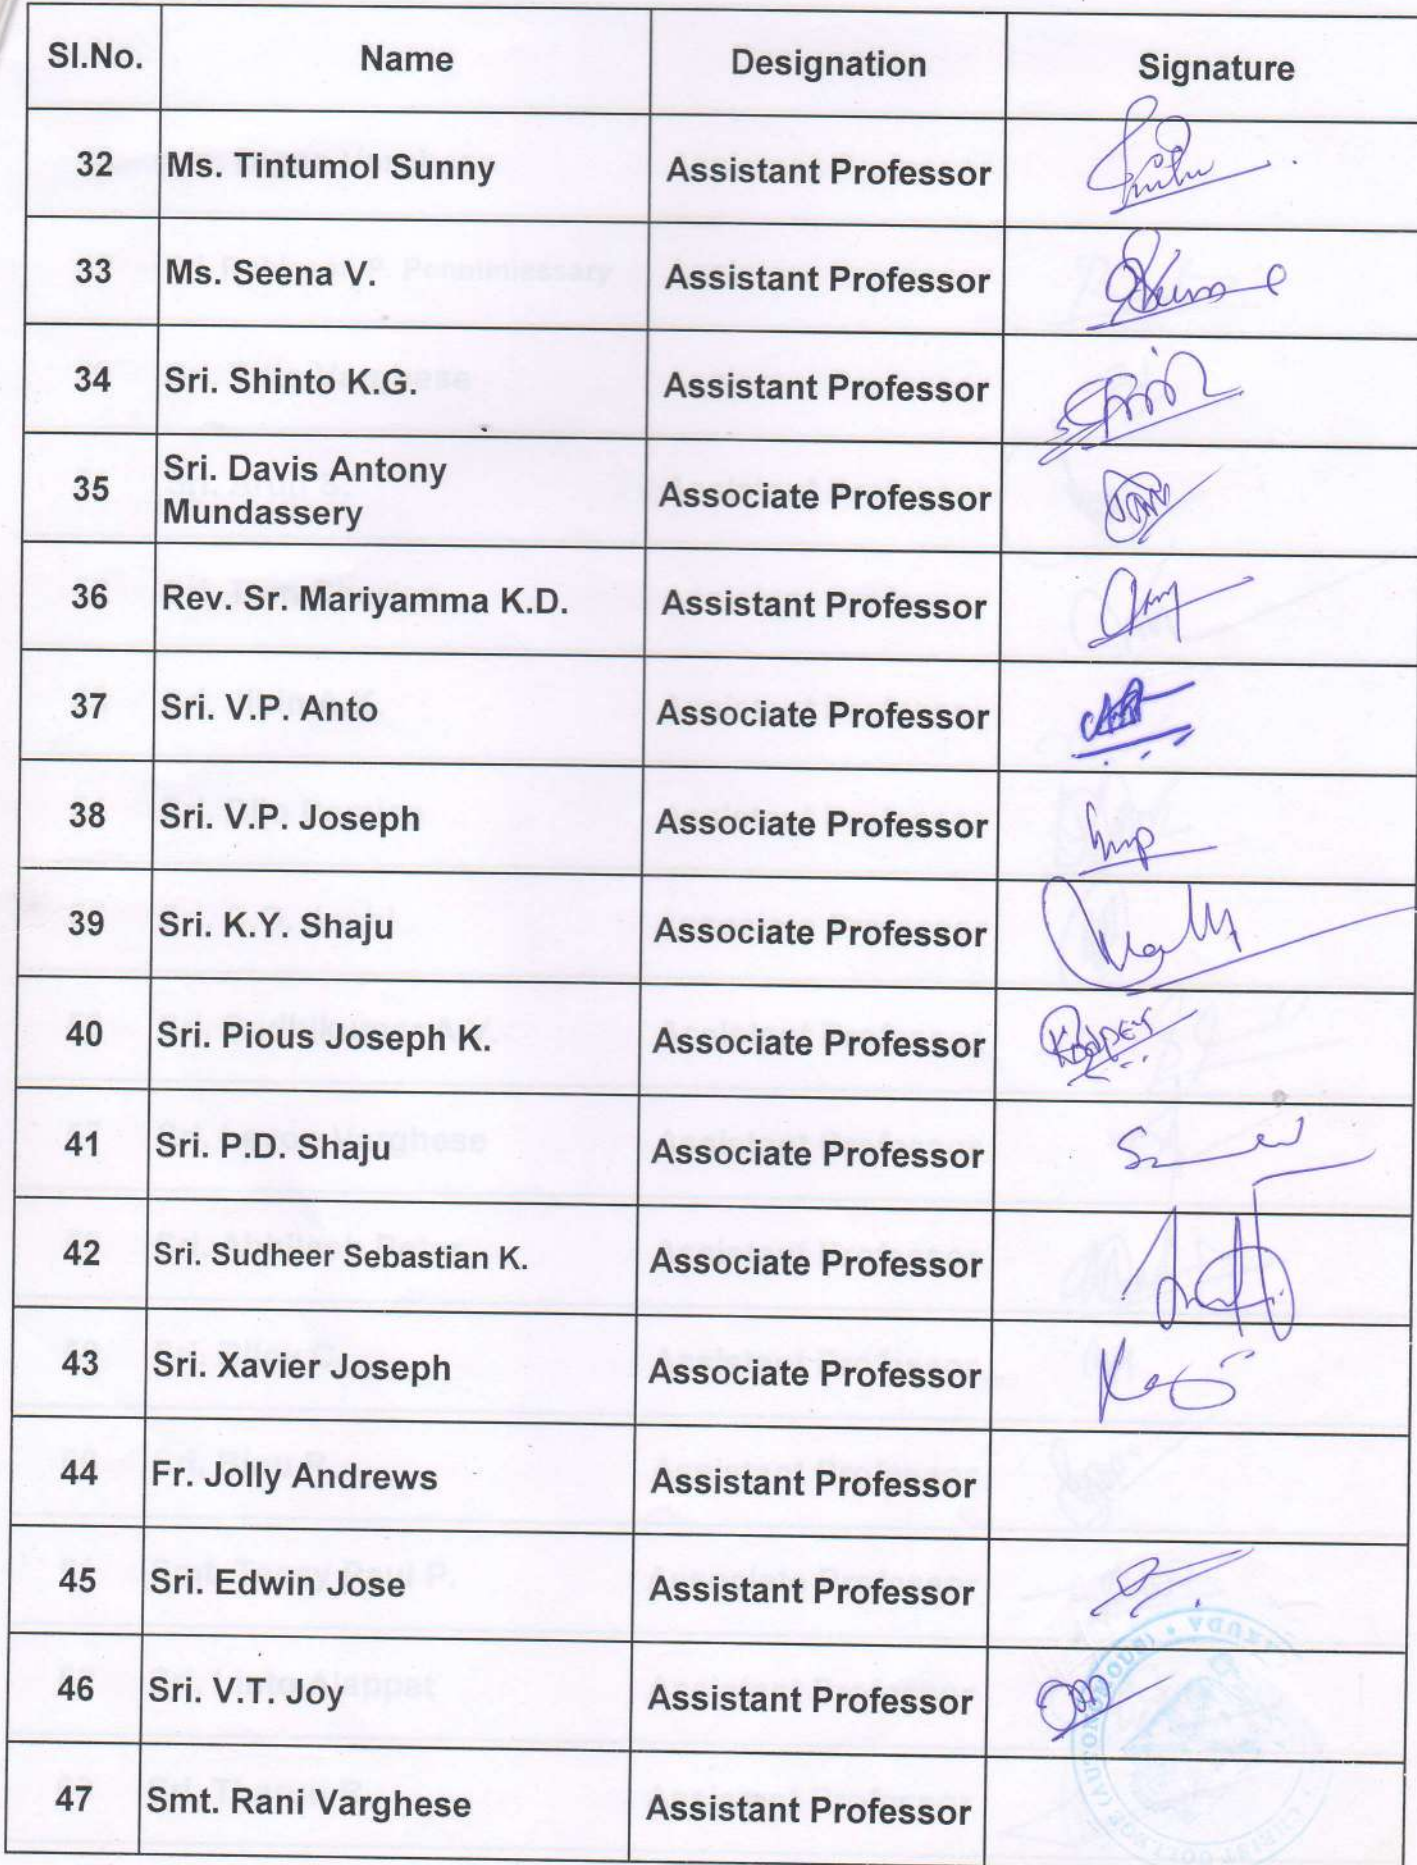 Sl.No. Name Designation Signature
32 Ms. Tintumol Sunny Assistant Professor
33 Ms. Seena V. Assistant Professor
34 Sri. Shinto K.G. Assistant Professor
35 Sri. Davis Antony
Mundassery Associate Professor
36 Rev. Sr. Mariyamma K.D. Assistant Professor
37 Sri. V.P. Anto Associate Professor
38 Sri. V.P. Joseph Associate Professor
39 Sri. K.Y. Shaju Associate Professor
40 Sri. Pious Joseph K. Associate Professor
41 Sri. P.D. Shaju Associate Professor
42 Sri. Sudheer Sebastian K. Associate Professor
43 Sri. Xavier Joseph Associate Professor
44 Fr. Jolly Andrews Assistant Professor
45 Sri. Edwin Jose Assistant Professor
46 Sri. V.T. Joy Assistant Professor
47 Smt. Rani Varghese Assistant Professor